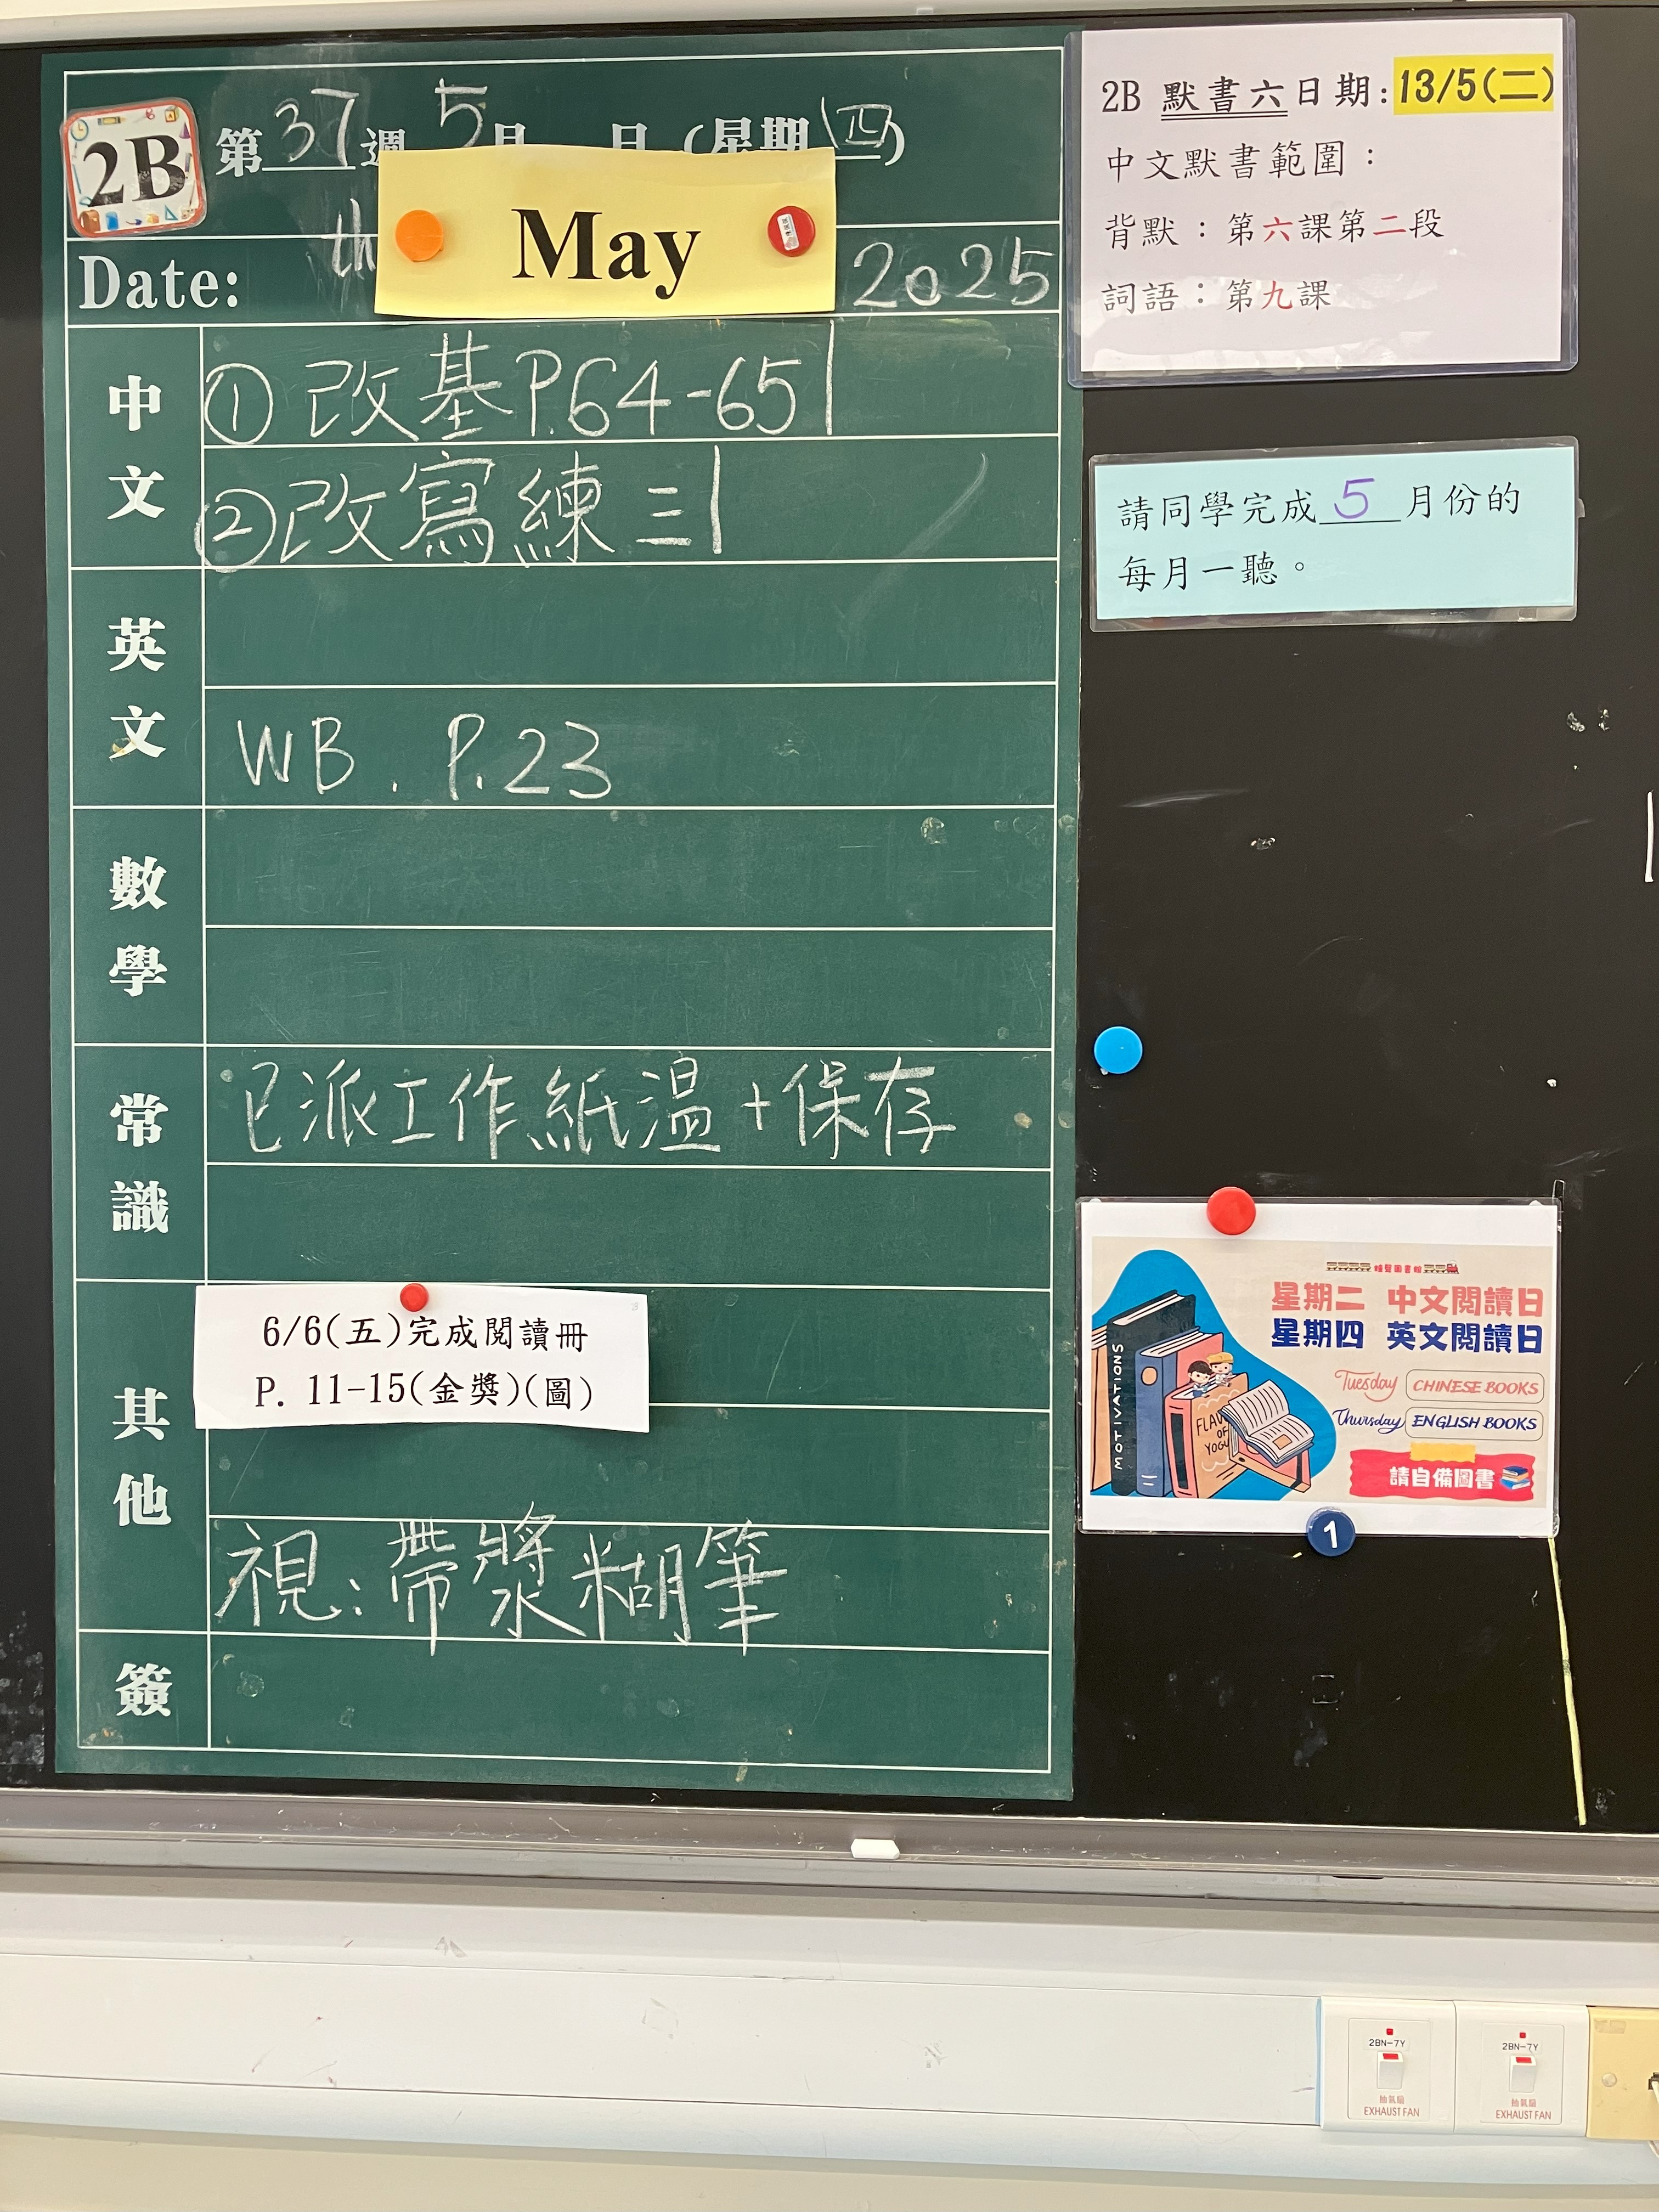 2B
第37週 5月 日(星期四)
Date: th May 2025
中文
①改基P.64-65
②改寫練三
英文
WB. P.23
數學
常識
已派工作紙温+保存
其他
6/6(五)完成閱讀冊
P. 11-15(金獎)(圖)
視:帶漿糊筆
簽
2B 默書六日期:13/5(二)
中文默書範圍:
背默:第六課第二段
詞語:第九課
請同學完成5月份的
每月一聽。
星期二 中文閱讀日
星期四 英文閱讀日
Tuesday CHINESE BOOKS
Thursday ENGLISH BOOKS
請自備圖書
MOTIVATIONS
OF
1
2BN-7Y
抽氣扇
EXHAUST FAN
2BN-7Y
抽氣扇
EXHAUST FAN